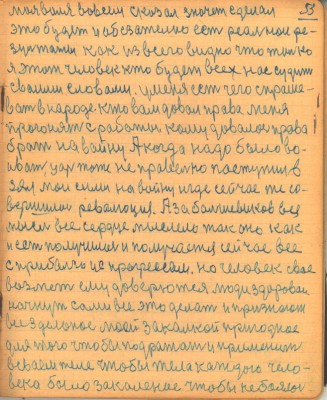 53
моя воля во всем сказал значит сделал
это будет и обезательно ест реальной ре-
зультатам как из всего видно что только
я этот человек кто будет всех нас судить
своими словами. у меня ест чего спраше-
вать в народе кто вам довал права меня
прогонять с работы кому довалос права
брат на вайну А когда надо было во-
иват, уах тоже не правелно поступил в
зял мои сили на вайну и где сейчас те со-
вершили революция. А за балшевиков вся
мысел все сердце мыслело так оно как
и ест получился и получается сейчас все
с прибалю и с прогресом. но человек свое
возмет ему доверются люди здоровя
начнут сами все это делат и признают
все зделоное моей закалкой природное
для того чтобы подражат и применит
в своем теле чтобы тела каждого чело-
века было закаленое чтобы не боялос